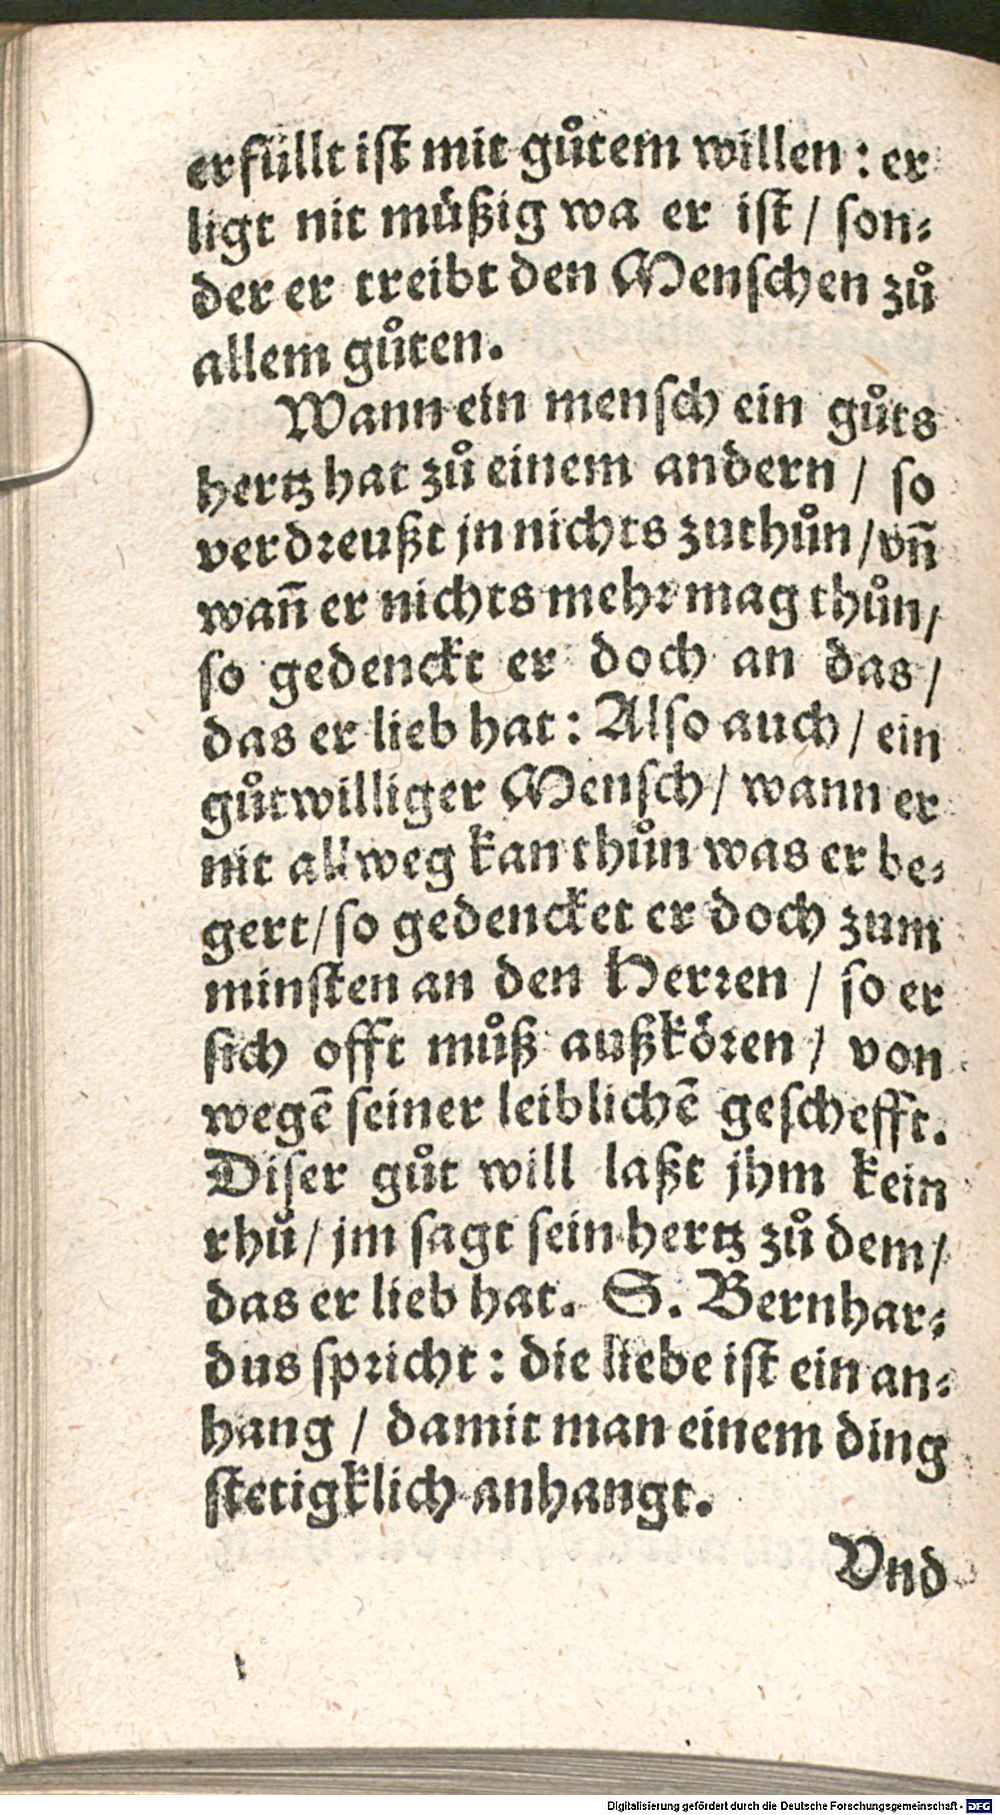 erfüllt ist mit gůtem willen : er
ligt nit müßig wa er ist / son⸗
der er treibt den Menschen zů
allem gůten.
Wann ein mensch ein gůts
hertz hat zů einem andern / so
verdreußt jn nichts zuthůn / vn̄
wan̄ er nichts mehr mag thůn /
so gedenckt er doch an das /
das er lieb hat : Also auch / ein
gůtwilliger Mensch / wann er
nit allweg kan thůn was er be⸗
gert / so gedencket er doch zum
minsten an den Herren / so er
sich offt můß außkören / von
wegē seiner leiblichē geschefft.
Diser gůt will laßt jhm kein
rhů / jm sagt sein hertz zů dem /
das er lieb hat. S. Bernhar⸗
dus spricht : die liebe ist ein an⸗
hang / damit man einem ding
stetigklich anhangt.
Vnd
Digitalisierung gefördert durch die Deutsche Forschungsgemeinschaft - DFG